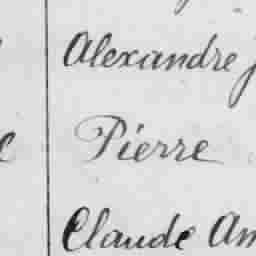 Alexandre
Pierre
Claude Am